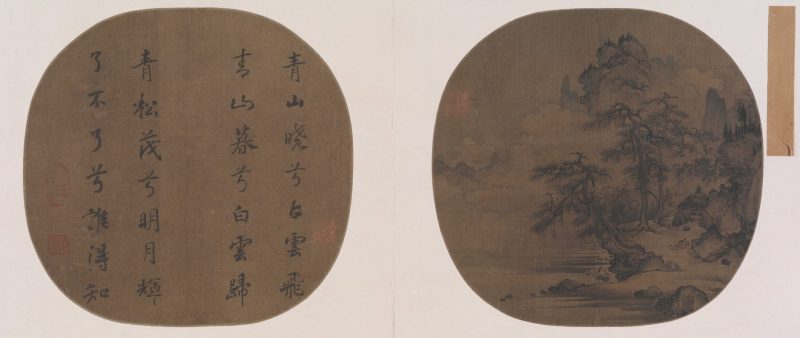 青山曉兮白雲飛
青山暮兮白雲歸
青松茂兮明月輝
了不了兮誰得知